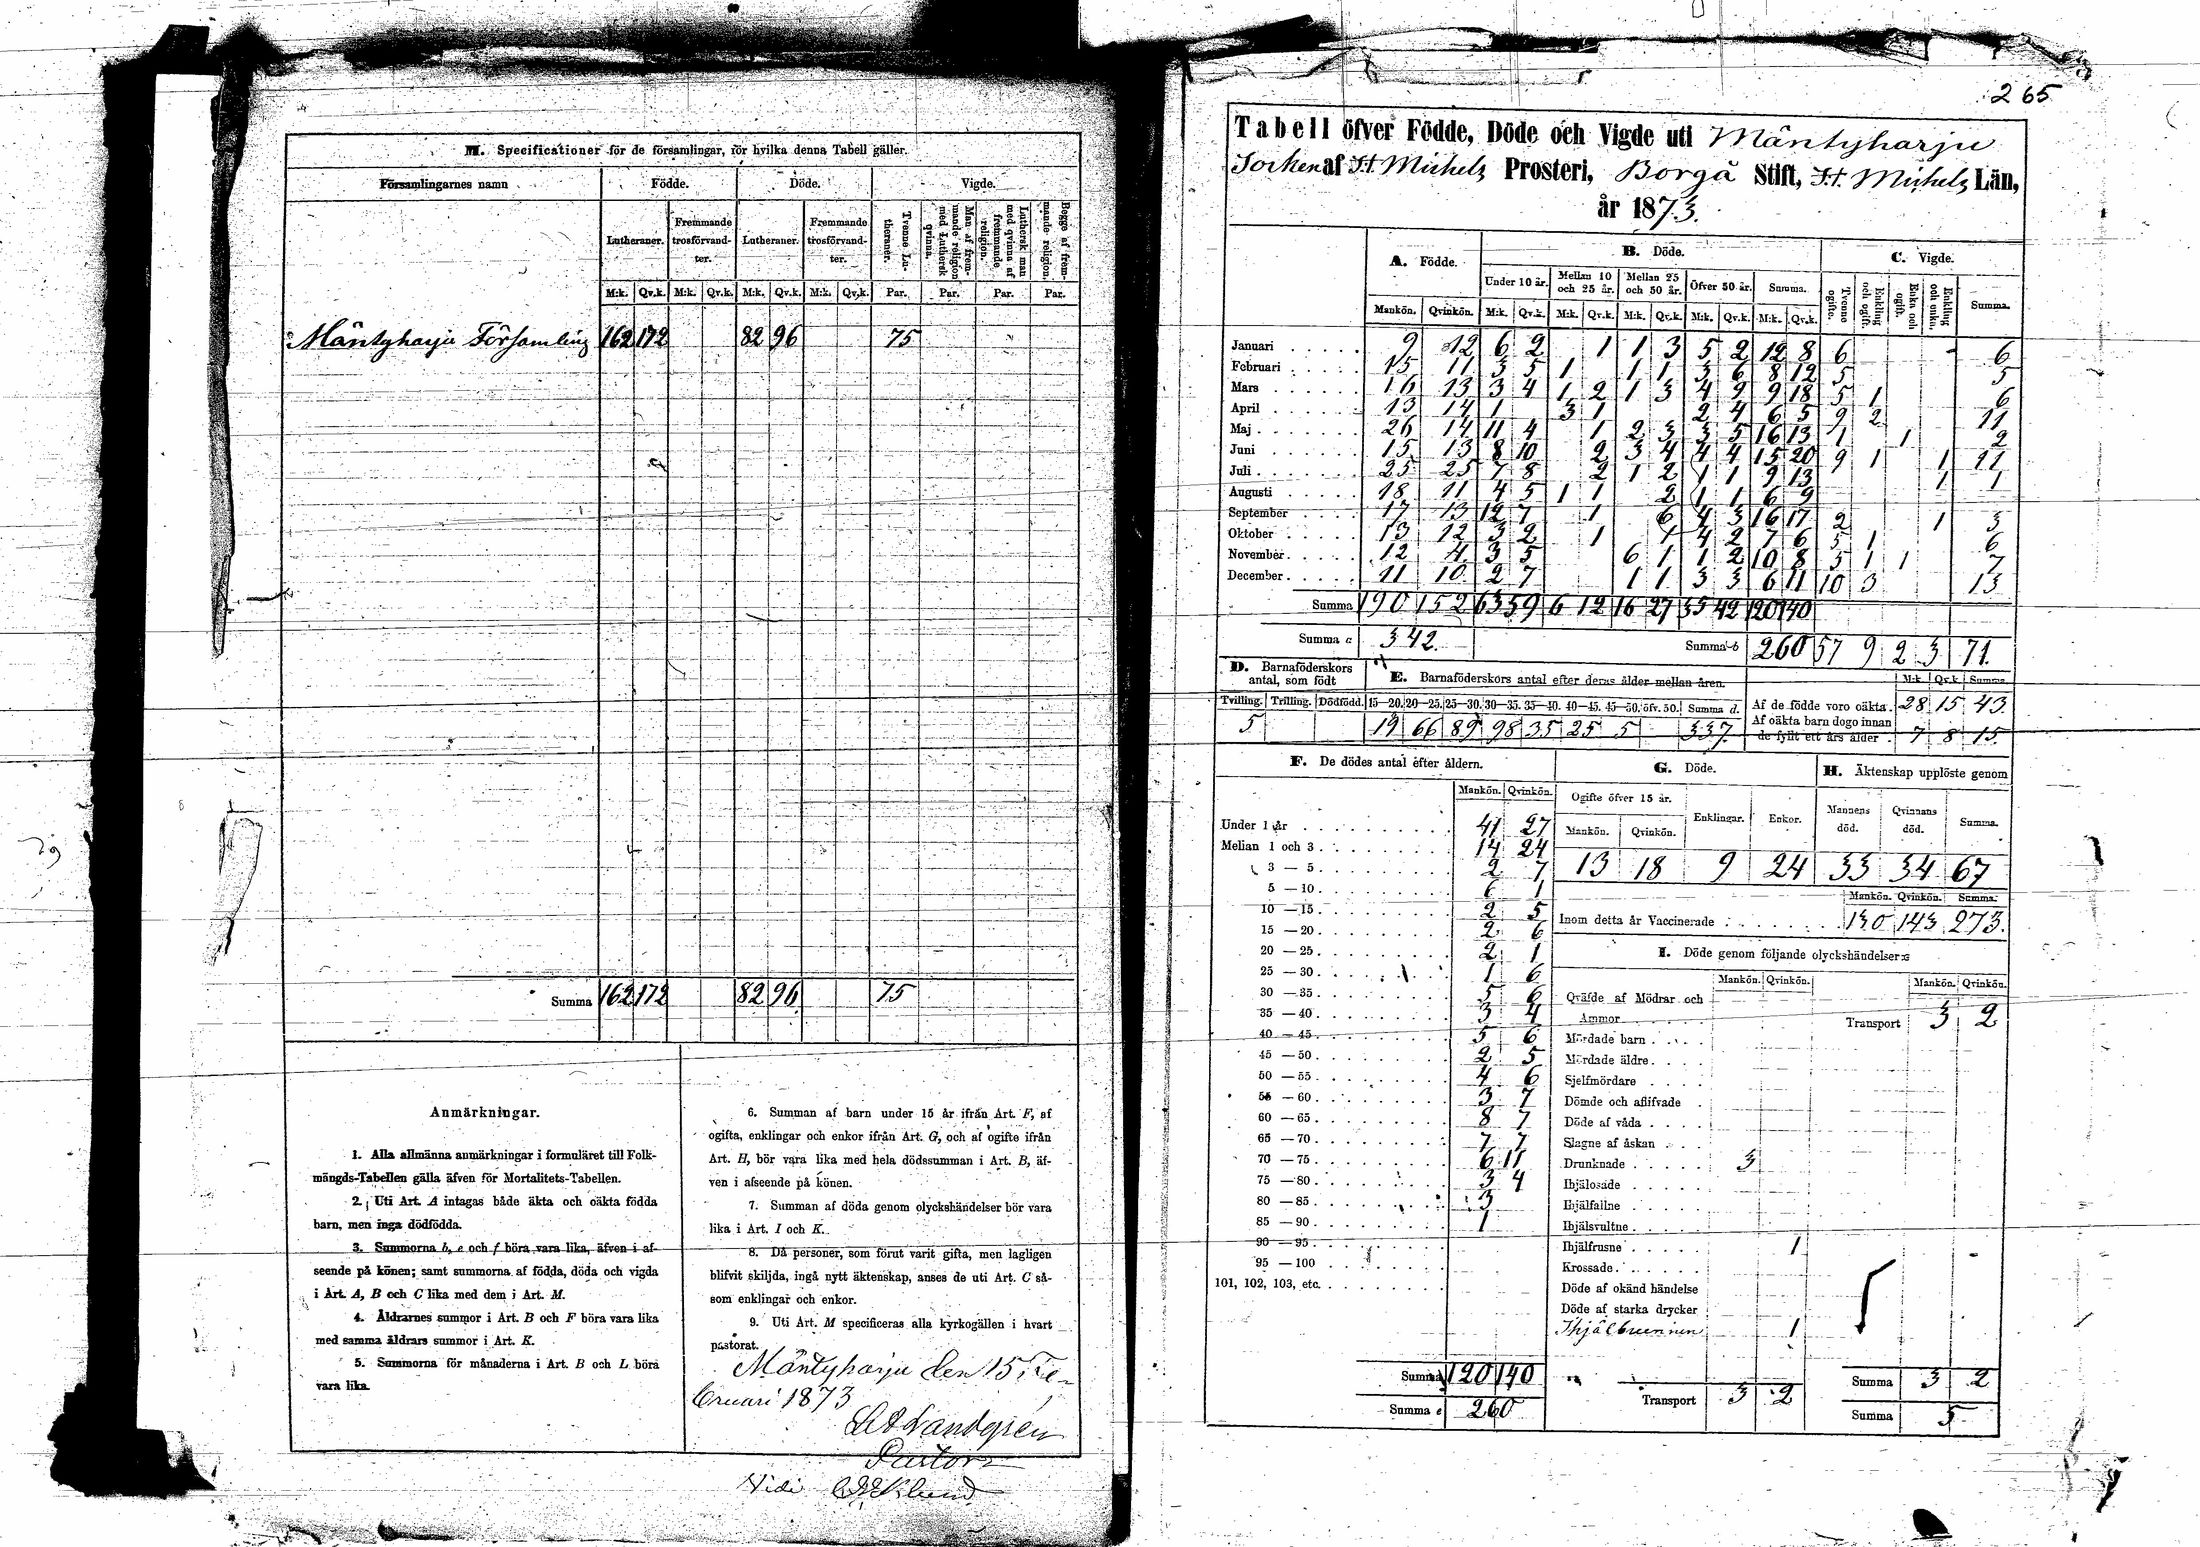 M. Specificationer för de församlingar, för hvilka denna Tabell gäller.
Församlingarnes namn Födde. Döde. Vigde.
Lutheraner. Fremmande trosförvandter. Lutheraner. Fremmande trosförvandter. Tvenne Lutheraner. Man af fremmande religion med Luthersk qvinna. Luthersk man med qvinna af fremmande religion. Begge af fremmande religion.
M:k. Qv.k. M:k. Qv.k. M:k. Qv.k. M:k. Qv.k. Par. Par. Par. Par.
Mäntyharju Församling 162 172 82 96 75
Summa 162 172 82 96 75
Anmärkningar.
1. Alla allmänna anmärkningar i formuläret till Folk-
mängds-Tabellen gälla äfven för Mortalitets-Tabellen.
2. Uti Art. A intagas både äkta och oäkta födda
barn, men inga dödfödda.
3. Summorna b, e och f böra vara lika, äfven i af-
seende på könen; samt summorna af födda, döda och vigda
i Art. A, B och C lika med dem i Art. M.
4. Åldrarnes summor i Art. B och F böra vara lika
med samma åldrars summor i Art. K.
5. Summorna för månaderna i Art. B och L böra
vara lika.
6. Summan af barn under 15 år ifrån Art. F, af
ogifta, enklingar och enkor ifrån Art. G, och af ogifte ifrån
Art. H, bör vara lika med hela dödssumman i Art. B, äf-
ven i afseende på könen.
7. Summan af döda genom olyckshändelser bör vara
lika i Art. I och K.
8. Då personer, som förut varit gifta, men lagligen
blifvit skiljda, ingå nytt äktenskap, anses de uti Art. C så-
som enklingar och enkor.
9. Uti Art. M specificeras alla kyrkogällen i hvart
pastorat.
Mäntyharju den 15 Fe-
bruari 1873
Landgren
Pastor
Vidi
265
Tabell öfver Födde, Döde och Vigde uti Mäntyharju
Socken af S:t Michels Prosteri, Borgå Stift, S:t Michels Län,
år 1873.
A. Födde. B. Döde. C. Vigde.
Under 10 år. Mellan 10 och 25 år. Mellan 25 och 50 år. Öfver 50 år. Summa. Tvenne ogifte. Enkling och ogift. Enka och ogift. Enkling och enka. Summa.
Mankön. Qvinkön. M:k. Qv.k. M:k. Qv.k. M:k. Qv.k. M:k. Qv.k. M:k. Qv.k.
Januari 9 12 6 2 1 1 3 5 2 12 8 6 6
Februari 15 11 3 5 1 1 1 3 6 8 12 5 5
Mars 16 13 3 4 1 2 1 3 4 9 9 18 5 1 6
April 13 14 1 3 1 2 4 6 5 9 2 11
Maj 26 14 11 4 1 2 3 3 5 16 13 1 1 2
Juni 15 13 8 10 2 3 4 4 4 15 20 9 1 1 11
Juli 25 25 7 8 2 1 2 1 1 9 13 1 1
Augusti 18 11 4 5 1 1 2 1 1 6 9
September 17 13 12 7 1 6 4 3 16 17 2 1 3
Oktober 13 12 3 2 1 1 4 2 7 6 5 1 6
November 12 4 3 5 6 1 1 2 10 8 5 1 1 7
December 11 10 2 7 1 1 3 3 6 11 10 3 13
Summa 190 152 63 59 6 12 16 27 35 42 120 140
Summa a 342. Summa b 260 57 9 2 3 71
D. Barnaföderskors antal, som födt
E. Barnaföderskors antal efter deras ålder mellan åren.
M:k. Qv.k. Summa
Tvilling. Trilling. Dödfödd. 15—20. 20—25. 25—30. 30—35. 35—40. 40—45. 45—50. öfv. 50. Summa d.
5 19 66 89 98 35 25 5 337
Af de födde voro oäkta 28 15 43
Af oäkta barn dogo innan
de fyllt ett års ålder 7 8 15
F. De dödes antal efter åldern.
Mankön. Qvinkön.
Under 1 år 41 27
Mellan 1 och 3 14 24
3—5 2 7
5—10 6 1
10—15 2 5
15—20 2 6
20—25 2 1
25—30 1 6
30—35 5 6
35—40 3 4
40—45 5 6
45—50 2 5
50—55 4 6
55—60 3 7
60—65 8 7
65—70 7 7
70—75 6 11
75—80 3 4
80—85 3
85—90 1
90—95
95—100
101, 102, 103, etc.
Summa 120 140
Summa e 260
G. Döde. H. Äktenskap upplöste genom
Ogifte öfver 15 år. Enklingar. Enkor. Mannens död. Qvinnans död. Summa.
Mankön. Qvinkön.
13 18 9 24 33 34 67
Mankön. Qvinkön. Summa.
Inom detta år Vaccinerade 130 143 273.
I. Döde genom följande olyckshändelser:
Mankön. Qvinkön. Mankön. Qvinkön.
Qväfde af Mödrar och
Ammor
Transport 3 2
Mördade barn
Mördade äldre
Sjelfmördare
Dömde och aflifvade
Döde af våda
Slagne af åskan
Drunknade 3
Ihjälosade
Ihjälfallne
Ihjälsvultne
Ihjälfrusne 1
Krossade
Döde af okänd händelse
Döde af starka drycker
Ihjälbrunnen 1
Transport 3 2
Summa 3 2
Summa 5